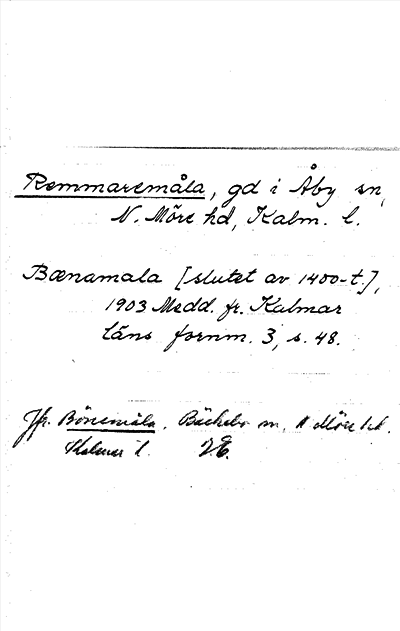 Remmaremåla, gd i Åby sn,
N. Möre hd, Kalm. l.
Bænamala [slutet av 1400-t.],
1903 Medd. fr. Kalmar
läns fornm. 3, s. 48.
Jfr. Bönemåla, Bäckebo sn, N Möre hd.
Kalmar l.